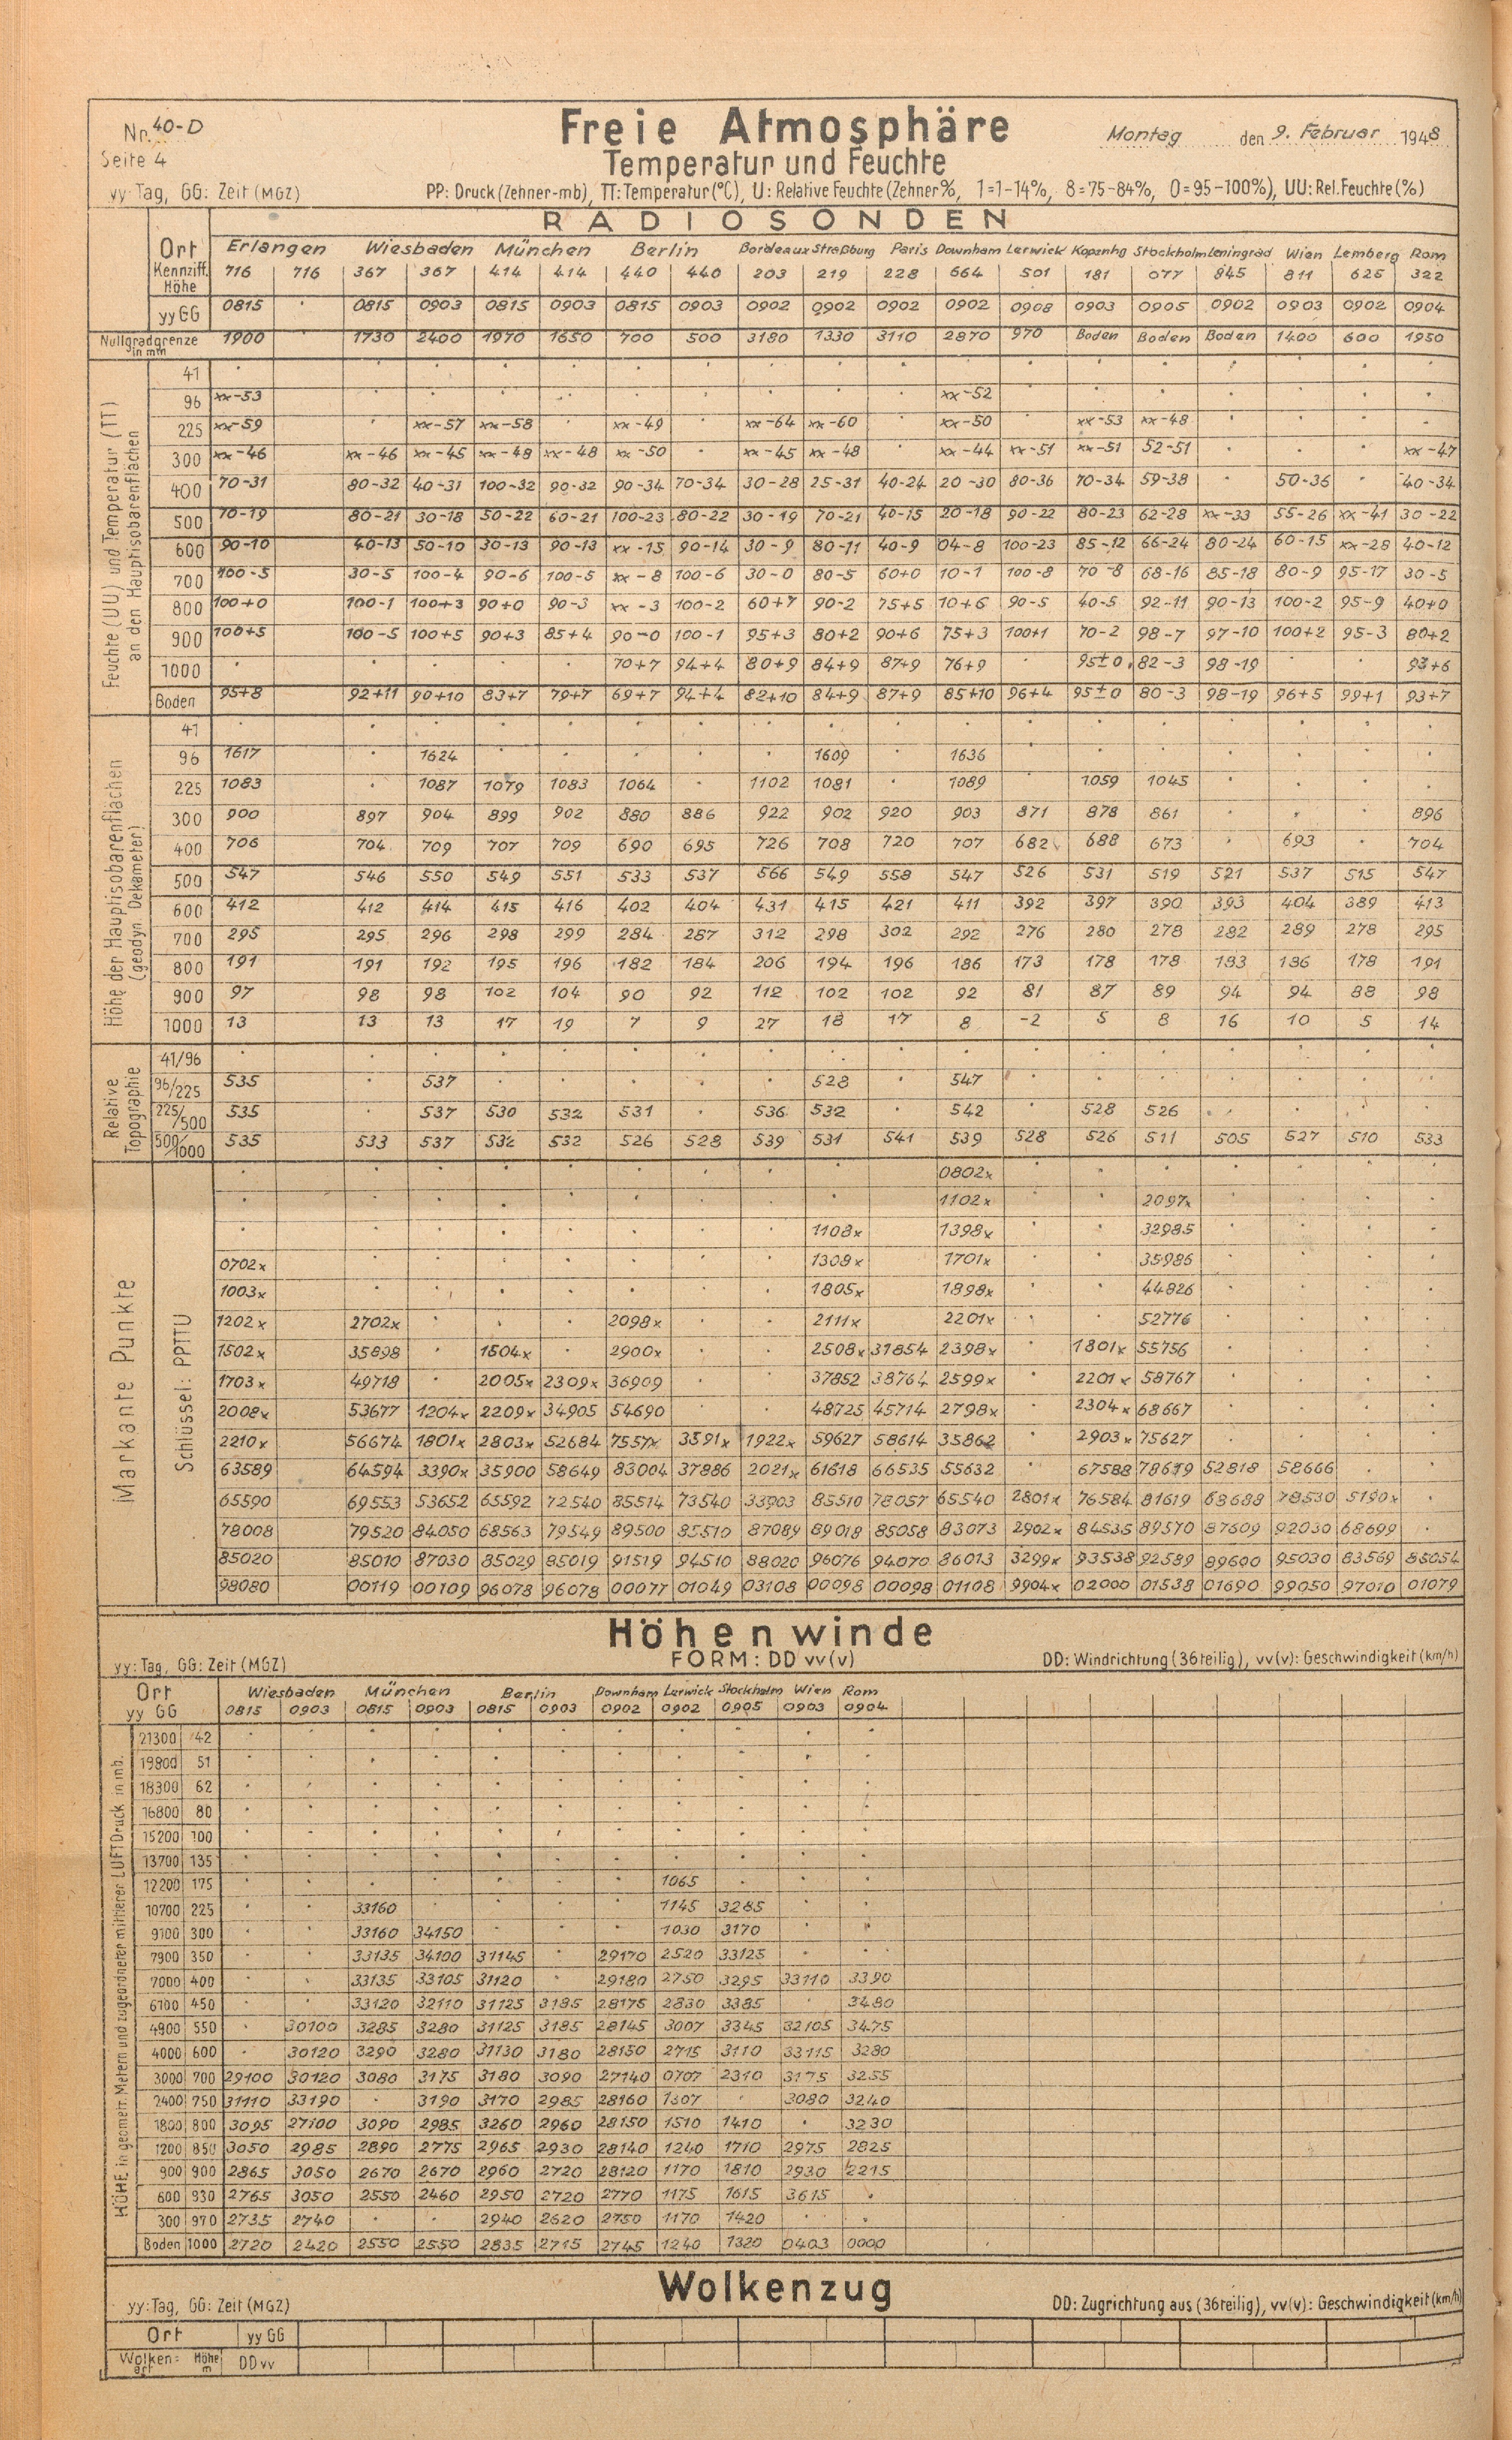 Nr. 40-D
Freie Atmosphäre
Montag den 9. Februar 1948
Seite 4
Temperatur und Feuchte
yy: Tag, GG: Zeit (MGZ) PP: Druck (Zehner-mb), TT: Temperatur (°C), U: Relative Feuchte (Zehner %, 1=1-14%, 8=75-84%, 0=95-100%), UU: Rel. Feuchte (%)
RADIOSONDEN
Ort Erlangen Wiesbaden München Berlin Bordeaux Straßburg Paris Downham Lerwick Kopenhg Stockholm Leningrad Wien Lemberg Rom
Kennziff. 716 716 367 367 414 414 440 440 203 219 228 664 501 181 077 845 811 625 322
Höhe
yy GG 0815 0815 0903 0815 0903 0815 0903 0902 0902 0902 0902 0908 0903 0905 0902 0903 0902 0904
Nullgradgrenze in mm 1900 1730 2400 1970 1650 700 500 3180 1330 3110 2870 970 Boden Boden Boden 1400 600 1950
Feuchte (UU) und Temperatur (TT)
an den Hauptisobarenflächen
41
96 xx-53 xx-52
225 xx-59 xx-57 xx-58 xx-49 xx-64 xx-60 xx-50 xx-53 xx-48
300 xx-46 xx-46 xx-45 xx-48 xx-48 xx-50 xx-45 xx-48 xx-44 xx-51 xx-51 52-51 xx-47
400 70-31 80-32 40-31 100-32 90-32 90-34 70-34 30-28 25-31 40-24 20-30 80-36 70-34 59-38 50-36 40-34
500 70-19 80-21 30-18 50-22 60-21 100-23 80-22 30-19 70-21 40-15 20-18 90-22 80-23 62-28 xx-33 55-26 xx-41 30-22
600 90-10 40-13 50-10 30-13 90-13 xx-15 90-14 30-9 80-11 40-9 04-8 100-23 85-12 66-24 80-24 60-15 xx-28 40-12
700 100-5 30-5 100-4 90-6 100-5 xx-8 100-6 30-0 80-5 60+0 10-1 100-8 70-8 68-16 85-18 80-9 95-17 30-5
800 100+0 100-1 100+3 90+0 90-3 xx-3 100-2 60+7 90-2 75+5 10+6 90-5 40-5 92-11 90-13 100-2 95-9 40+0
900 100+5 100-5 100+5 90+3 85+4 90-0 100-1 95+3 80+2 90+6 75+3 100+1 70-2 98-7 97-10 100+2 95-3 80+2
1000 70+7 94+4 80+9 84+9 87+9 76+9 95±0 82-3 98-19 93+6
Boden 95+8 92+11 90+10 83+7 79+7 69+7 94+4 82+10 84+9 87+9 85+10 96+4 95±0 80-3 98-19 96+5 99+1 93+7
Höhe der Hauptisobarenflächen
(geodyn. Dekameter)
41
96 1617 1624 1609 1636
225 1083 1087 1079 1083 1064 1102 1081 1089 1059 1045
300 900 897 904 899 902 880 886 922 902 920 903 871 878 861 896
400 706 704 709 707 709 690 695 726 708 720 707 682 688 673 693 704
500 547 546 550 549 551 533 537 566 549 558 547 526 531 519 521 537 515 547
600 412 412 414 415 416 402 404 431 415 421 411 392 397 390 393 404 389 413
700 295 295 296 298 299 284 287 312 298 302 292 276 280 278 282 289 278 295
800 191 191 192 195 196 182 184 206 194 196 186 173 178 178 183 186 178 191
900 97 98 98 102 104 90 92 112 102 102 92 81 87 89 94 94 88 98
1000 13 13 13 17 19 7 9 27 18 17 8 -2 5 8 16 10 5 14
Relative
Topographie
41/96
96/225 535 537 528 547
225/500 535 537 530 532 531 536 532 542 528 526
500/1000 535 533 537 532 532 526 528 539 531 541 539 528 526 511 505 527 510 533
Markante Punkte
Schlüssel: PPTTU
0802x
1102x 2097x
1108x 1398x 32985
0702x 1308x 1701x 35986
1003x 1805x 1898x 44826
1202x 2702x 2098x 2111x 2201x 52776
1502x 35898 1504x 2900x 2508x 31854 2398x 1801x 55756
1703x 49718 2005x 2309x 36909 37852 38764 2599x 2201x 58767
2008x 53677 1204x 2209x 34905 54690 48725 45714 2798x 2304x 68667
2210x 56674 1801x 2803x 52684 7557x 3591x 1922x 59627 58614 35862 2903x 75627
63589 64594 3390x 35900 58649 83004 37886 2021x 61618 66535 55632 67588 78619 52818 58666
65590 69553 53652 65592 72540 85514 73540 33903 85510 78057 65540 2801x 76584 81619 68688 78530 5190x
78008 79520 84050 68563 79549 89500 85510 87089 89018 85058 83073 2902x 84535 89570 87609 92030 68699
85020 85010 87030 85029 85019 91519 94510 88020 96076 94070 86013 3299x 93538 92589 89600 95030 83569 85054
98080 00119 00109 96078 96078 00077 01049 03108 00098 00098 01108 9904x 02000 01538 01690 99050 97010 01079
Höhenwinde
yy: Tag, GG: Zeit (MGZ) FORM: DD vv(v) DD: Windrichtung (36teilig), vv(v): Geschwindigkeit (km/h)
Ort Wiesbaden München Berlin Downham Lerwick Stockholm Wien Rom
yy GG 0815 0903 0815 0903 0815 0903 0902 0902 0905 0903 0904
HÖHE in geometr. Metern und zugeordneter mittlerer LUFTDruck in mb.
21300 42
19800 51
18300 62
16800 80
15200 100
13700 135
12200 175 1065
10700 225 33160 1145 3285
9100 300 33160 34150 1030 3170
7900 350 33135 34100 31145 29170 2520 33125
7000 400 33135 33105 31120 29180 2750 3295 33110 3390
6100 450 33120 32110 31125 3185 28175 2830 3385 3480
4900 550 30100 3285 3280 31125 3185 28145 3007 3345 32105 3475
4000 600 30120 3290 3280 31130 3180 28150 2715 3110 33115 3280
3000 700 29100 30120 3080 3175 3180 3090 27140 0707 2310 3175 3255
2400 750 31110 33190 3190 3170 2985 28160 1307 3080 3240
1800 800 3095 27100 3090 2985 3260 2960 28150 1510 1410 3230
1200 850 3050 2985 2890 2775 2965 2930 28140 1240 1710 2975 2825
900 900 2865 3050 2670 2670 2960 2720 28120 1170 1810 2930 2215
600 930 2765 3050 2550 2460 2950 2720 2770 1175 1615 3615
300 970 2735 2740 2940 2620 2750 1170 1420
Boden 1000 2720 2420 2550 2550 2835 2715 2745 1240 1320 0403 0000
Wolkenzug
yy: Tag, GG: Zeit (MGZ) DD: Zugrichtung aus (36teilig), vv(v): Geschwindigkeit (km/h)
Ort yy GG
Wolken=art Höhe m DD vv